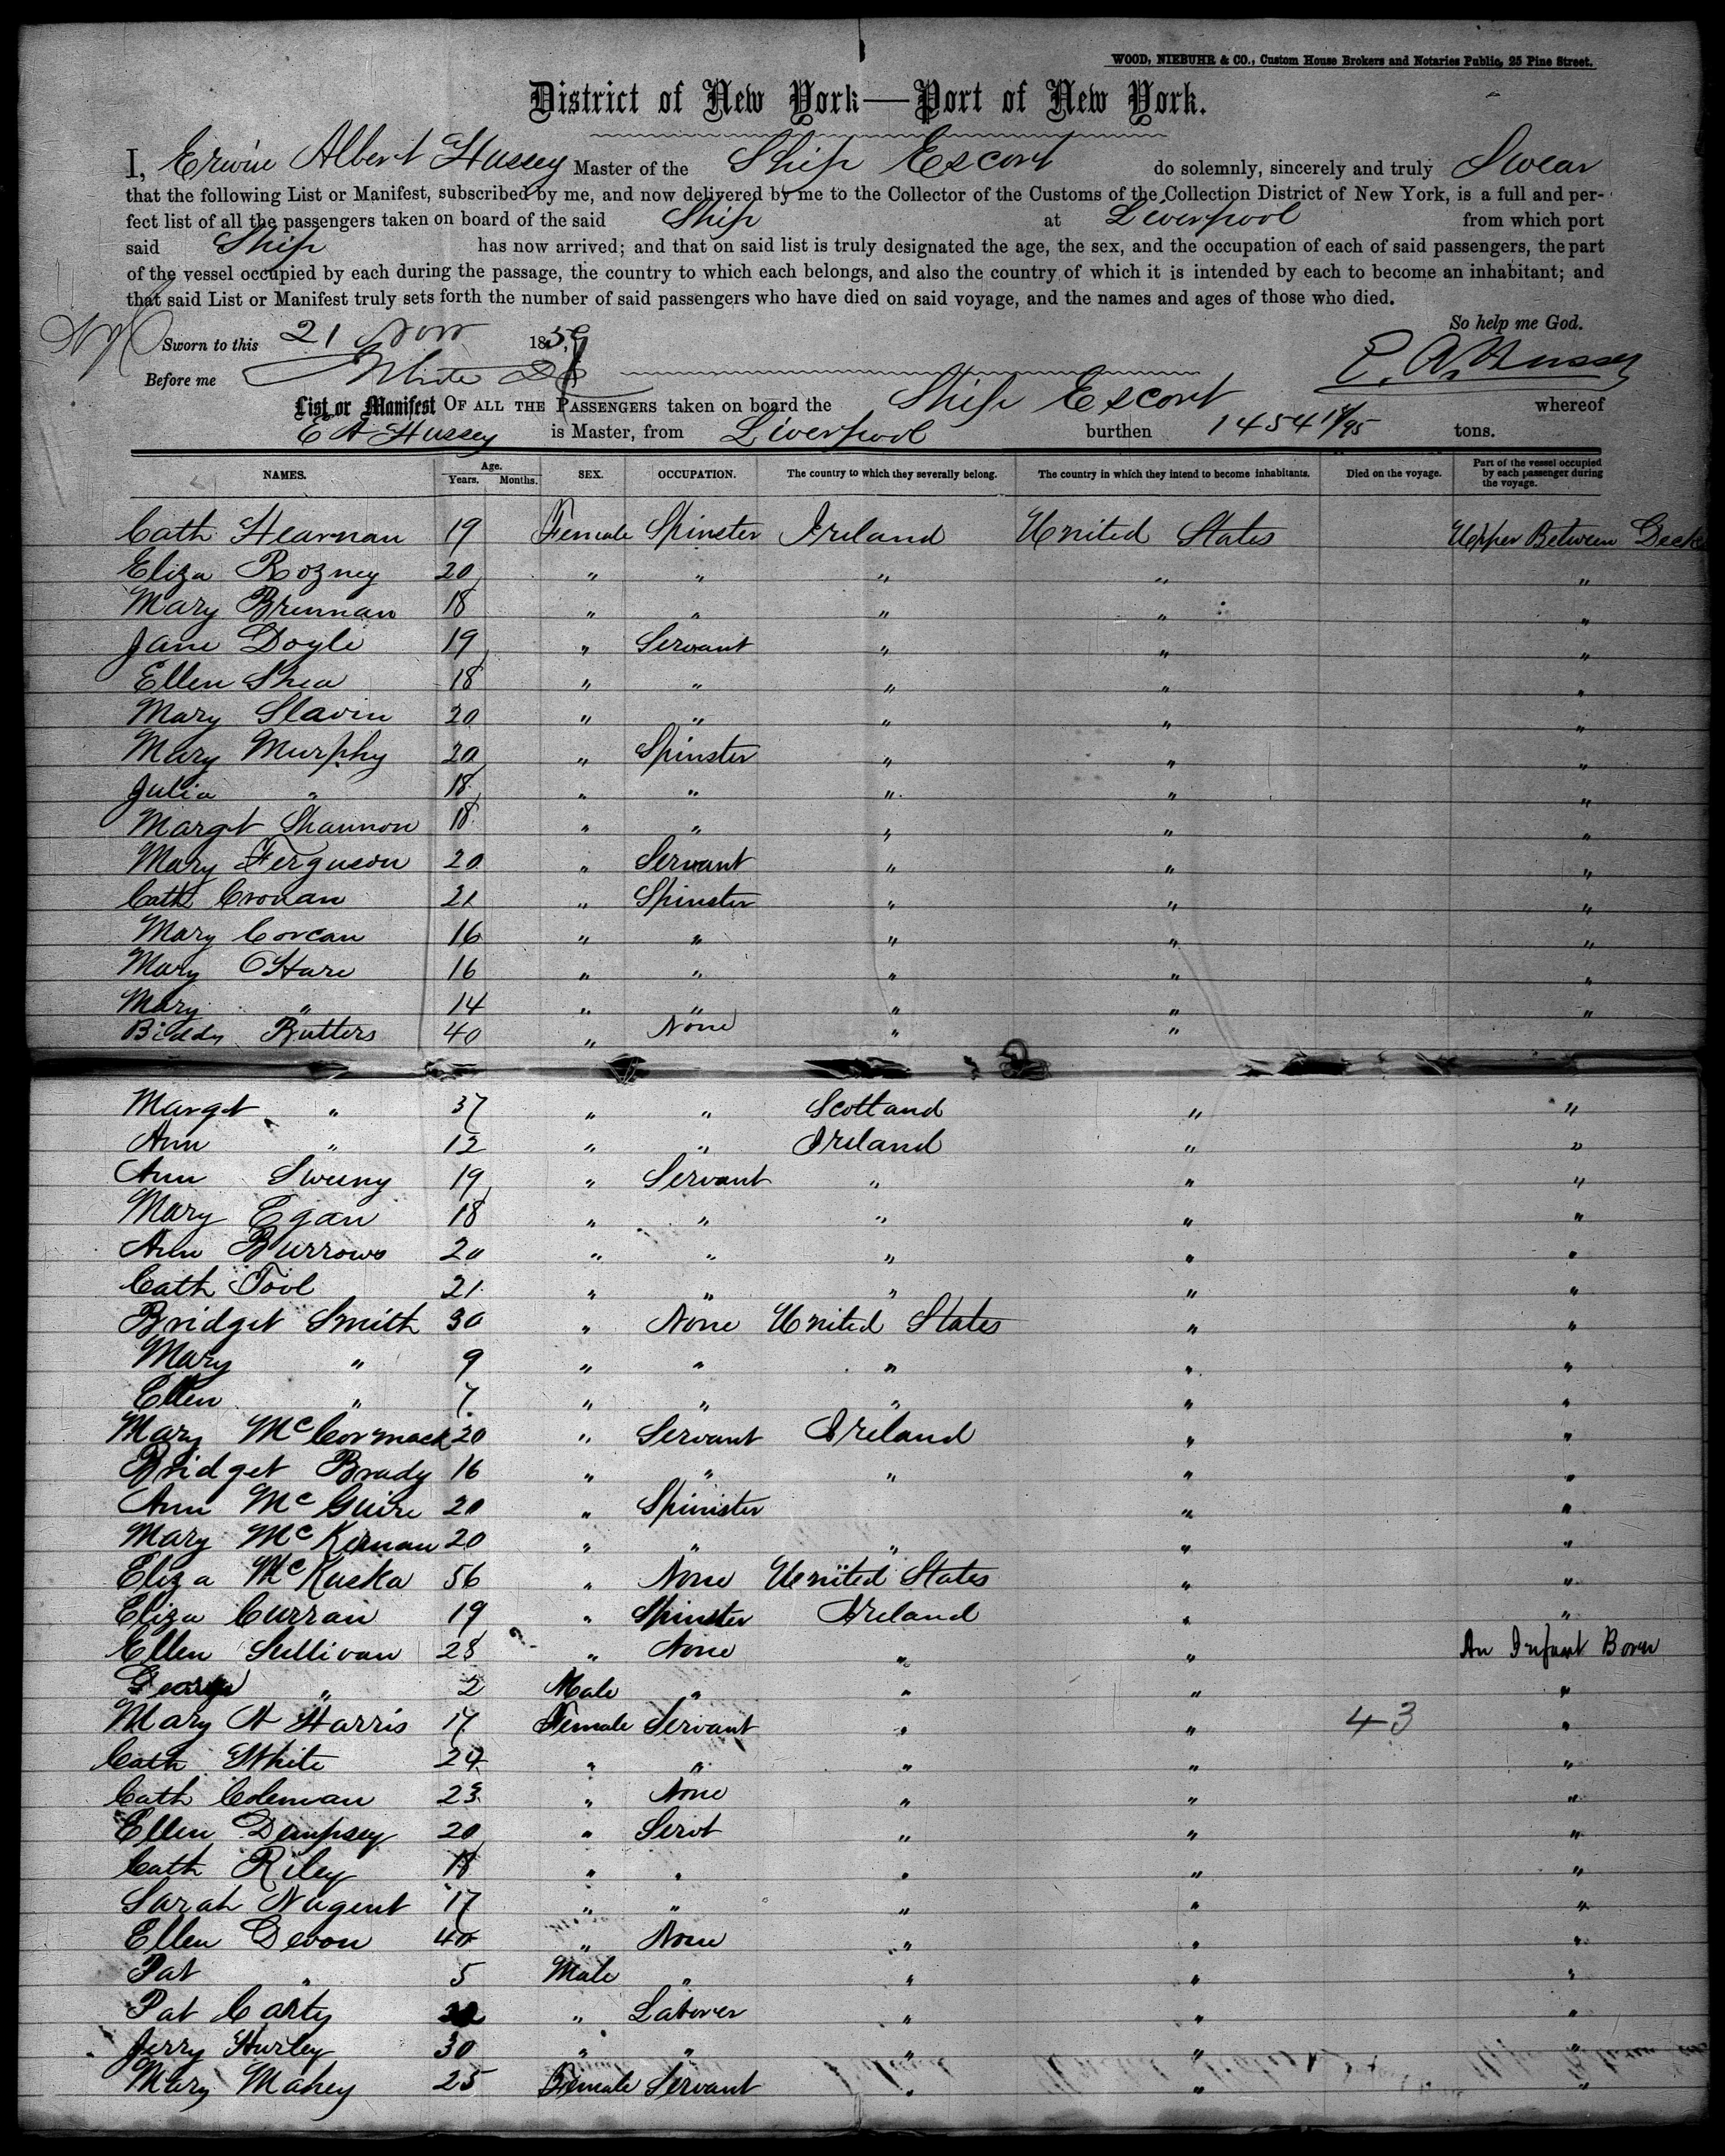 WOOD, NIEBUHR & CO., Custom House Brokers and Notaries Public, 25 Pine Street.
District of New York—Port of New York.
I, Erwin Albert Hussey Master of the Ship Escort do solemnly, sincerely and truly Swear
that the following List or Manifest, subscribed by me, and now delivered by me to the Collector of the Customs of the Collection District of New York, is a full and per-
fect list of all the passengers taken on board of the said Ship at Liverpool from which port
said Ship has now arrived; and that on said list is truly designated the age, the sex, and the occupation of each of said passengers, the part
of the vessel occupied by each during the passage, the country to which each belongs, and also the country of which it is intended by each to become an inhabitant; and
that said List or Manifest truly sets forth the number of said passengers who have died on said voyage, and the names and ages of those who died.
So help me God.
Sworn to this 21 Nov 1859
Before me White E. A. Hussey
List or Manifest OF ALL THE PASSENGERS taken on board the Ship Escort whereof
E A Hussey is Master, from Liverpool burthen 1454 /95 tons.
NAMES. Age. Years. Months. SEX. OCCUPATION. The country to which they severally belong. The country in which they intend to become inhabitants. Died on the voyage. Part of the vessel occupied by each passenger during the voyage.
Cath Hearnan 19 Female Spinster Ireland United States Upper Between Decks
Eliza Rozney 20 " " " " "
Mary Brennan 18 " " " " "
Jane Doyle 19 " Servant " " "
Ellen Shea 18 " " " " "
Mary Slavin 20 " " " " "
Mary Murphy 20 " Spinster " " "
Julia " 18 " " " " "
Margt Shannon 18 " " " " "
Mary Ferguson 20 " Servant " " "
Cath Cronan 21 " Spinster " " "
Mary Corcan 16 " " " " "
Mary OHare 16 " " " " "
Mary " 14 " " " " "
Biddy Butters 40 " None " "
Margt " 37 " " Scotland " "
Ann " 12 " " Ireland " "
Ann Sweeny 19 " Servant " " "
Mary Egan 18 " " " " "
Ann Burrows 20 " " " " "
Cath Tool 21 " " " " "
Bridget Smith 30 " None United States " "
Mary " 9 " " " " "
Ellen " 7 " " " " "
Mary McCormack 20 " Servant Ireland " "
Bridget Brady 16 " " " " "
Ann McGuire 20 " Spinister " "
Mary McKernan 20 " " " " "
Eliza McKuska 56 " None United States " "
Eliza Curran 19 " Spinster Ireland " "
Ellen Sullivan 28 " None " " An Infant Born
George " 2 Male " " " "
Mary A Harris 17 Female Servant " " 43 "
Cath White 24 " " " " "
Cath Coleman 23 " None " " "
Ellen Dempsey 20 " Servt " " "
Cath Riley 18 " " " " "
Sarah Nugent 17 " " " " "
Ellen Devon 40 " None " " "
Pat " 5 Male " " " "
Pat Carty " Laborer " " "
Jerry Hurley 30 " " " " "
Mary Mahey 25 Female Servant " " "